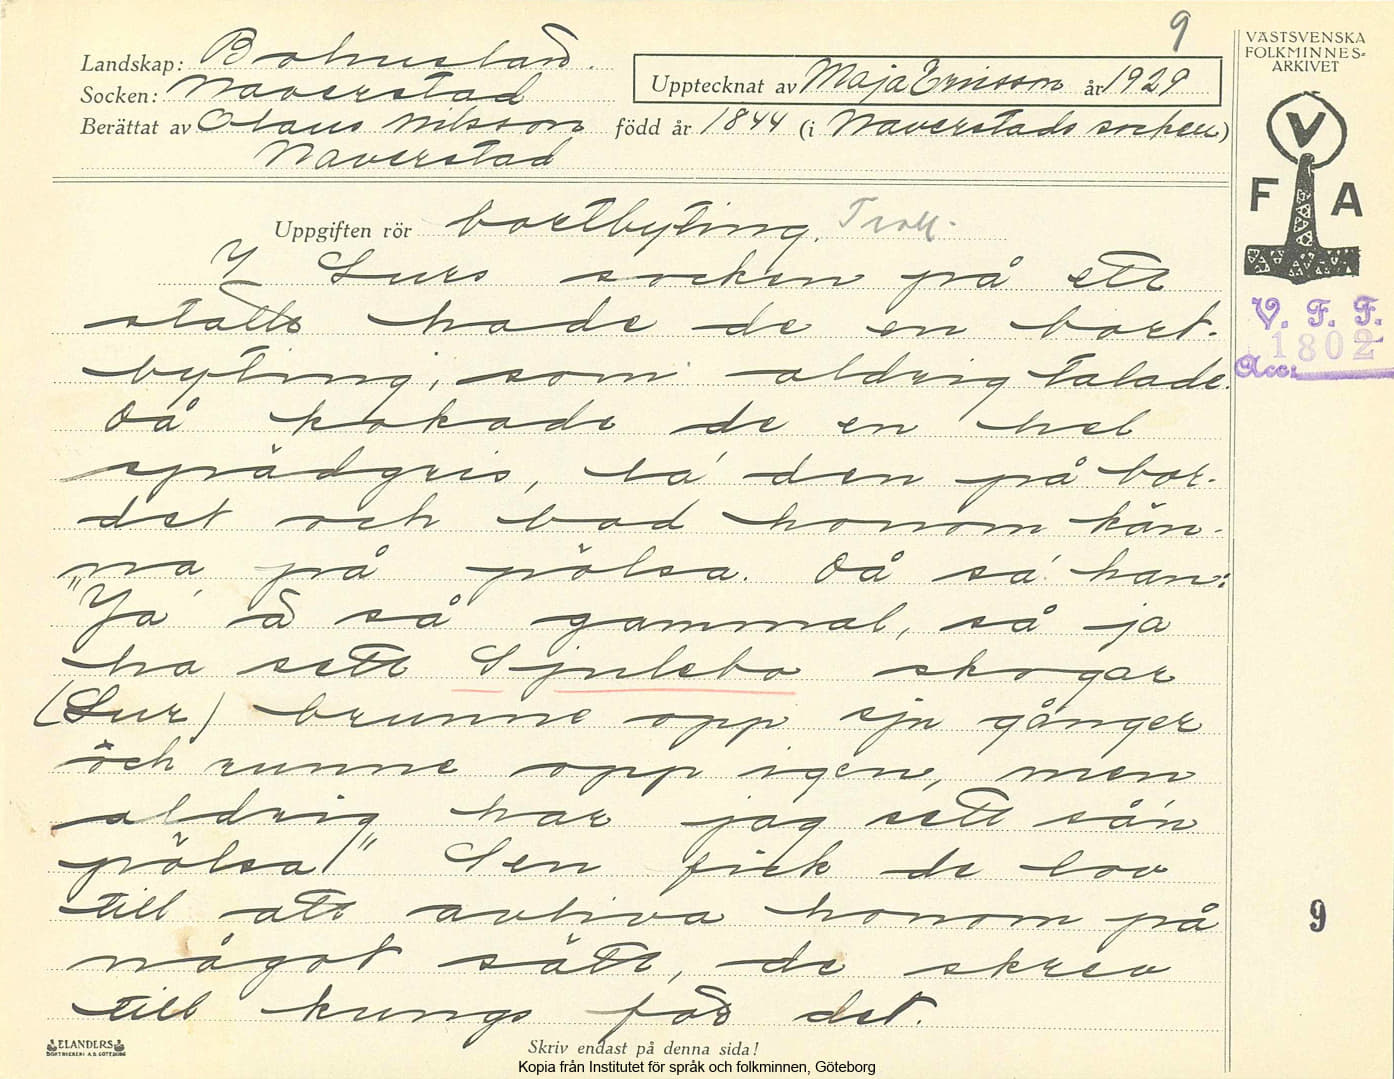 9
Landskap: Bohuslän.
Socken: Naverstad
Upptecknat av Maja Ericsson år 1929
Berättat av Olaus Nilsson född år 1844 (i Naverstads socken)
Naverstad
VÄSTSVENSKA
FOLKMINNES-
ARKIVET
V
F A
V. F. F.
1802
Acc.
Uppgiften rör bortbyting. Troll.
I Lurs socken på ett
ställe hade de en bort-
byting, som aldrig talade.
Då kokade de en hel
spädgris, la' den på bor-
det och bad honom kän-
na på pölsa. Då sa' han:
"Ja' ä så gammal, så ja
ha sett Sjulebo skogar
(Lur) brunne opp sju gånger
och runne opp igen, men
aldrig har jag sett så'n
pölsa!" Sen fick de lov
till att avliva honom på
något sätt, de skrev
till kungs för det.
9
ELANDERS
BOKTRYCKERI A.B. GÖTEBORG
Skriv endast på denna sida!
Kopia från Institutet för språk och folkminnen, Göteborg